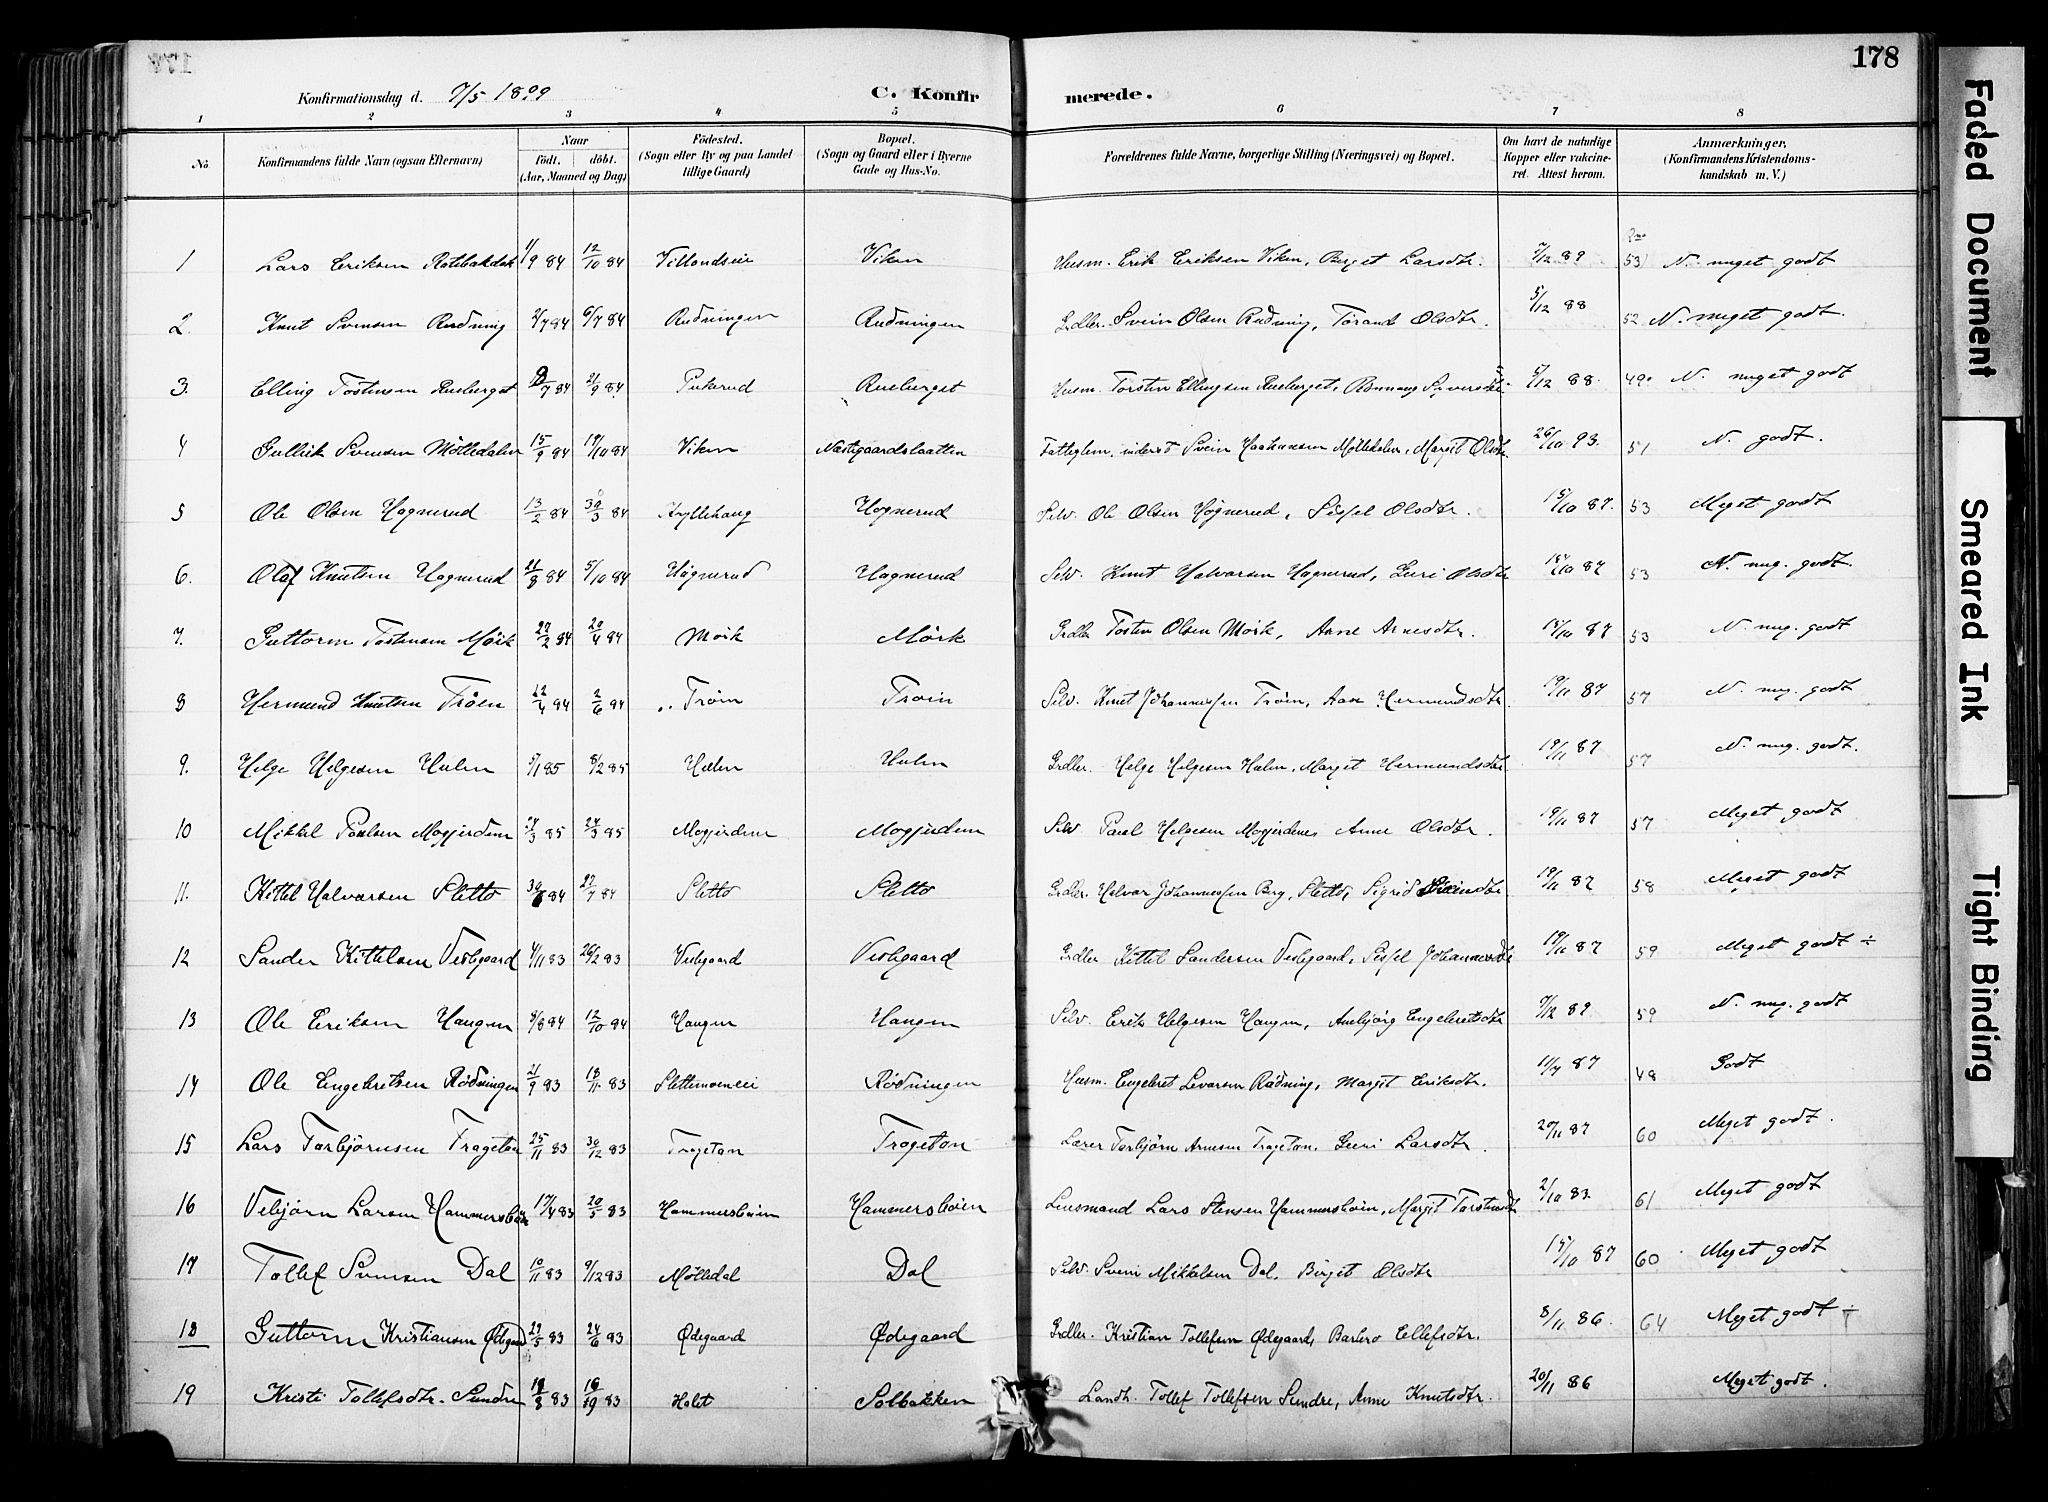 178
Konfirmationsdag d. 7/5 1899
C. Konfirmerede.
1 2 3 4 5 6 7 8
No. Konfirmandens fulde Navn (ogsaa Efternavn) Naar født. døbt. (Aar, Maaned og Dag) Fødested. (Sogn eller By og paa Landet tillige Gaard) Bopæl. (Sogn og Gaard eller i Byerne Gade og Hus-No. Forældrenes fulde Navne, borgerlige Stilling (Næringsvei) og Bopæl. Om havt de naturlige Kopper eller vakcineret. Attest herom. Anmærkninger, (Konfirmandens Kristendomskundskab m. V.)
1 Lars Eriksen 1/9 84 12/10 84 Villandseie Viken Husm. Erik Eriksen Viken, Birget Larsdtr. 7/12 89 53 N. meget godt
2. Knut Svensen Rudning 2/7 84 6/7 84 Rudningen Rudningen Grdbr. Svein Olsen Rudning, Torand Olsdtr. 5/12 88 52 N. meget godt.
3. Elling Tostensen Rusberget /7 84 21/9 84 Pukerud Rusberget Husm. Torsten Ellingsen Rusberget, 5/12 88. 49. N. meget godt
4 Gullik Svensen Mölledalen 15/9 84 19/10 84 Viken Næstgaardslaatten Fattiglem, inderst Svein Haakansen Mölledalen, Margit Olsdtr. 26/10 93. 51 N. godt.
5 Ole Olsen Hognerud 13/2 84 30/3 84 Hognerud Selv. Ole Olsen Høgnerud, Sissel Olsdtr. 15/10 87. 53 Meget godt
6. Olaf Knutsen Hagnerud 21/8 84 5/10 84 Høgnerud Hagnerud Selv. Knut Halvorsen Hagnerud, Guri Olsdtr 15/10 87 53 N. meg. godt.
7. Guttorm Tostensen Mørk 27/2 84 20/4 84 Mørk Mørk Grdbr Tosten Olsen Mørk, Anne Arnesdtr. 15/10 87 53 N. meg. godt
8 Hermund Knutsen Trøen 22/4 84 2/6 84 Trøin Troin Selv. Knut Johannessen Trøin, Aase Hermundsdtr. 19/11 87 57 N. meg. godt
9. Helge Helgesen Hulen 5/1 85 8/2 85 Hulen Hulen Grdbr. Helge Helgesen Hulen, Marget Hermundsdtr. 19/11 87 57 N. meg. godt.
10 Mikkel Paulsen Mogjerdene /3 85 /3 85 Mogjerdene Mogjerdene Selv Paul Helgesen Mogjerdene, Anne Olsdtr. 19/11 87 57 Meget godt
11. Kittel Halvorsen Sletto 84 27/7 84 Sletto Sletto Grdbr. Halvor Johannessen Berg, Sletto, Sigrid 19/11 87 58 Meget godt
12 Sander Kittelsen Veslegaard 4/11 83 26/2 83 Veslegaard Veslegaard Grdbr Kittel Sandersen Veslegaard, Sissel Johannesdtr 19/11 87 59 Meget godt ÷
13 Ole Eriksen Haugen 3/8 84 12/10 84 Haugen Haugen Selv. Erik Helgesen Haugen, Ambjörg Engebretsdtr 7/12 89 59 N. meg. godt
14 Ole Engebretsen Rødningen 21/9 83 18/11 83 Slettemoeneie Rødningen Husm. Engebret Levorsen Rødning, Margit Eriksdtr. 11/7 87 48 Godt
15 Lars Torbjörnsen Trageton 25/11 83 30/12 83 Trageton Trageton Lærer Torbjörn Arnesen Trageton, Guri Larsdtr. 20/11 87 60 Meget godt.
16 Vebjørn Larsen Hammersbøin 17/4 83 20/5 83 Hammersbøin Hammersbøien Lensmand Lars Stensen Hammersbøin, Margit Torstensdtr 2/10 83 61 Meget godt
17 Tollef Svensen Dal 10/11 83 9/12 83 Mølledal Dal Selv. Svein Mikkelsen Dal, Birget Olsdtr 15/10 87 60 Meget godt
18 Guttorm Kristiansen Ødegaard 29/5 83 24/6 83 Ødegaard Ødegaard Grdbr. Kristian Tollefsen Ødegaard, Barbro Ellefsdtr. 8/11 86. 64 Meget godt ÷
19 Kristi Tollefsdtr. Sundre 18/8 83 16/9 83 Holet Solbakken Landh. Tollef Tollefsen Sundre, Anne Knutsdtr. 20/11 86 Meget godt.
Faded Document
Smeared Ink
Tight Binding